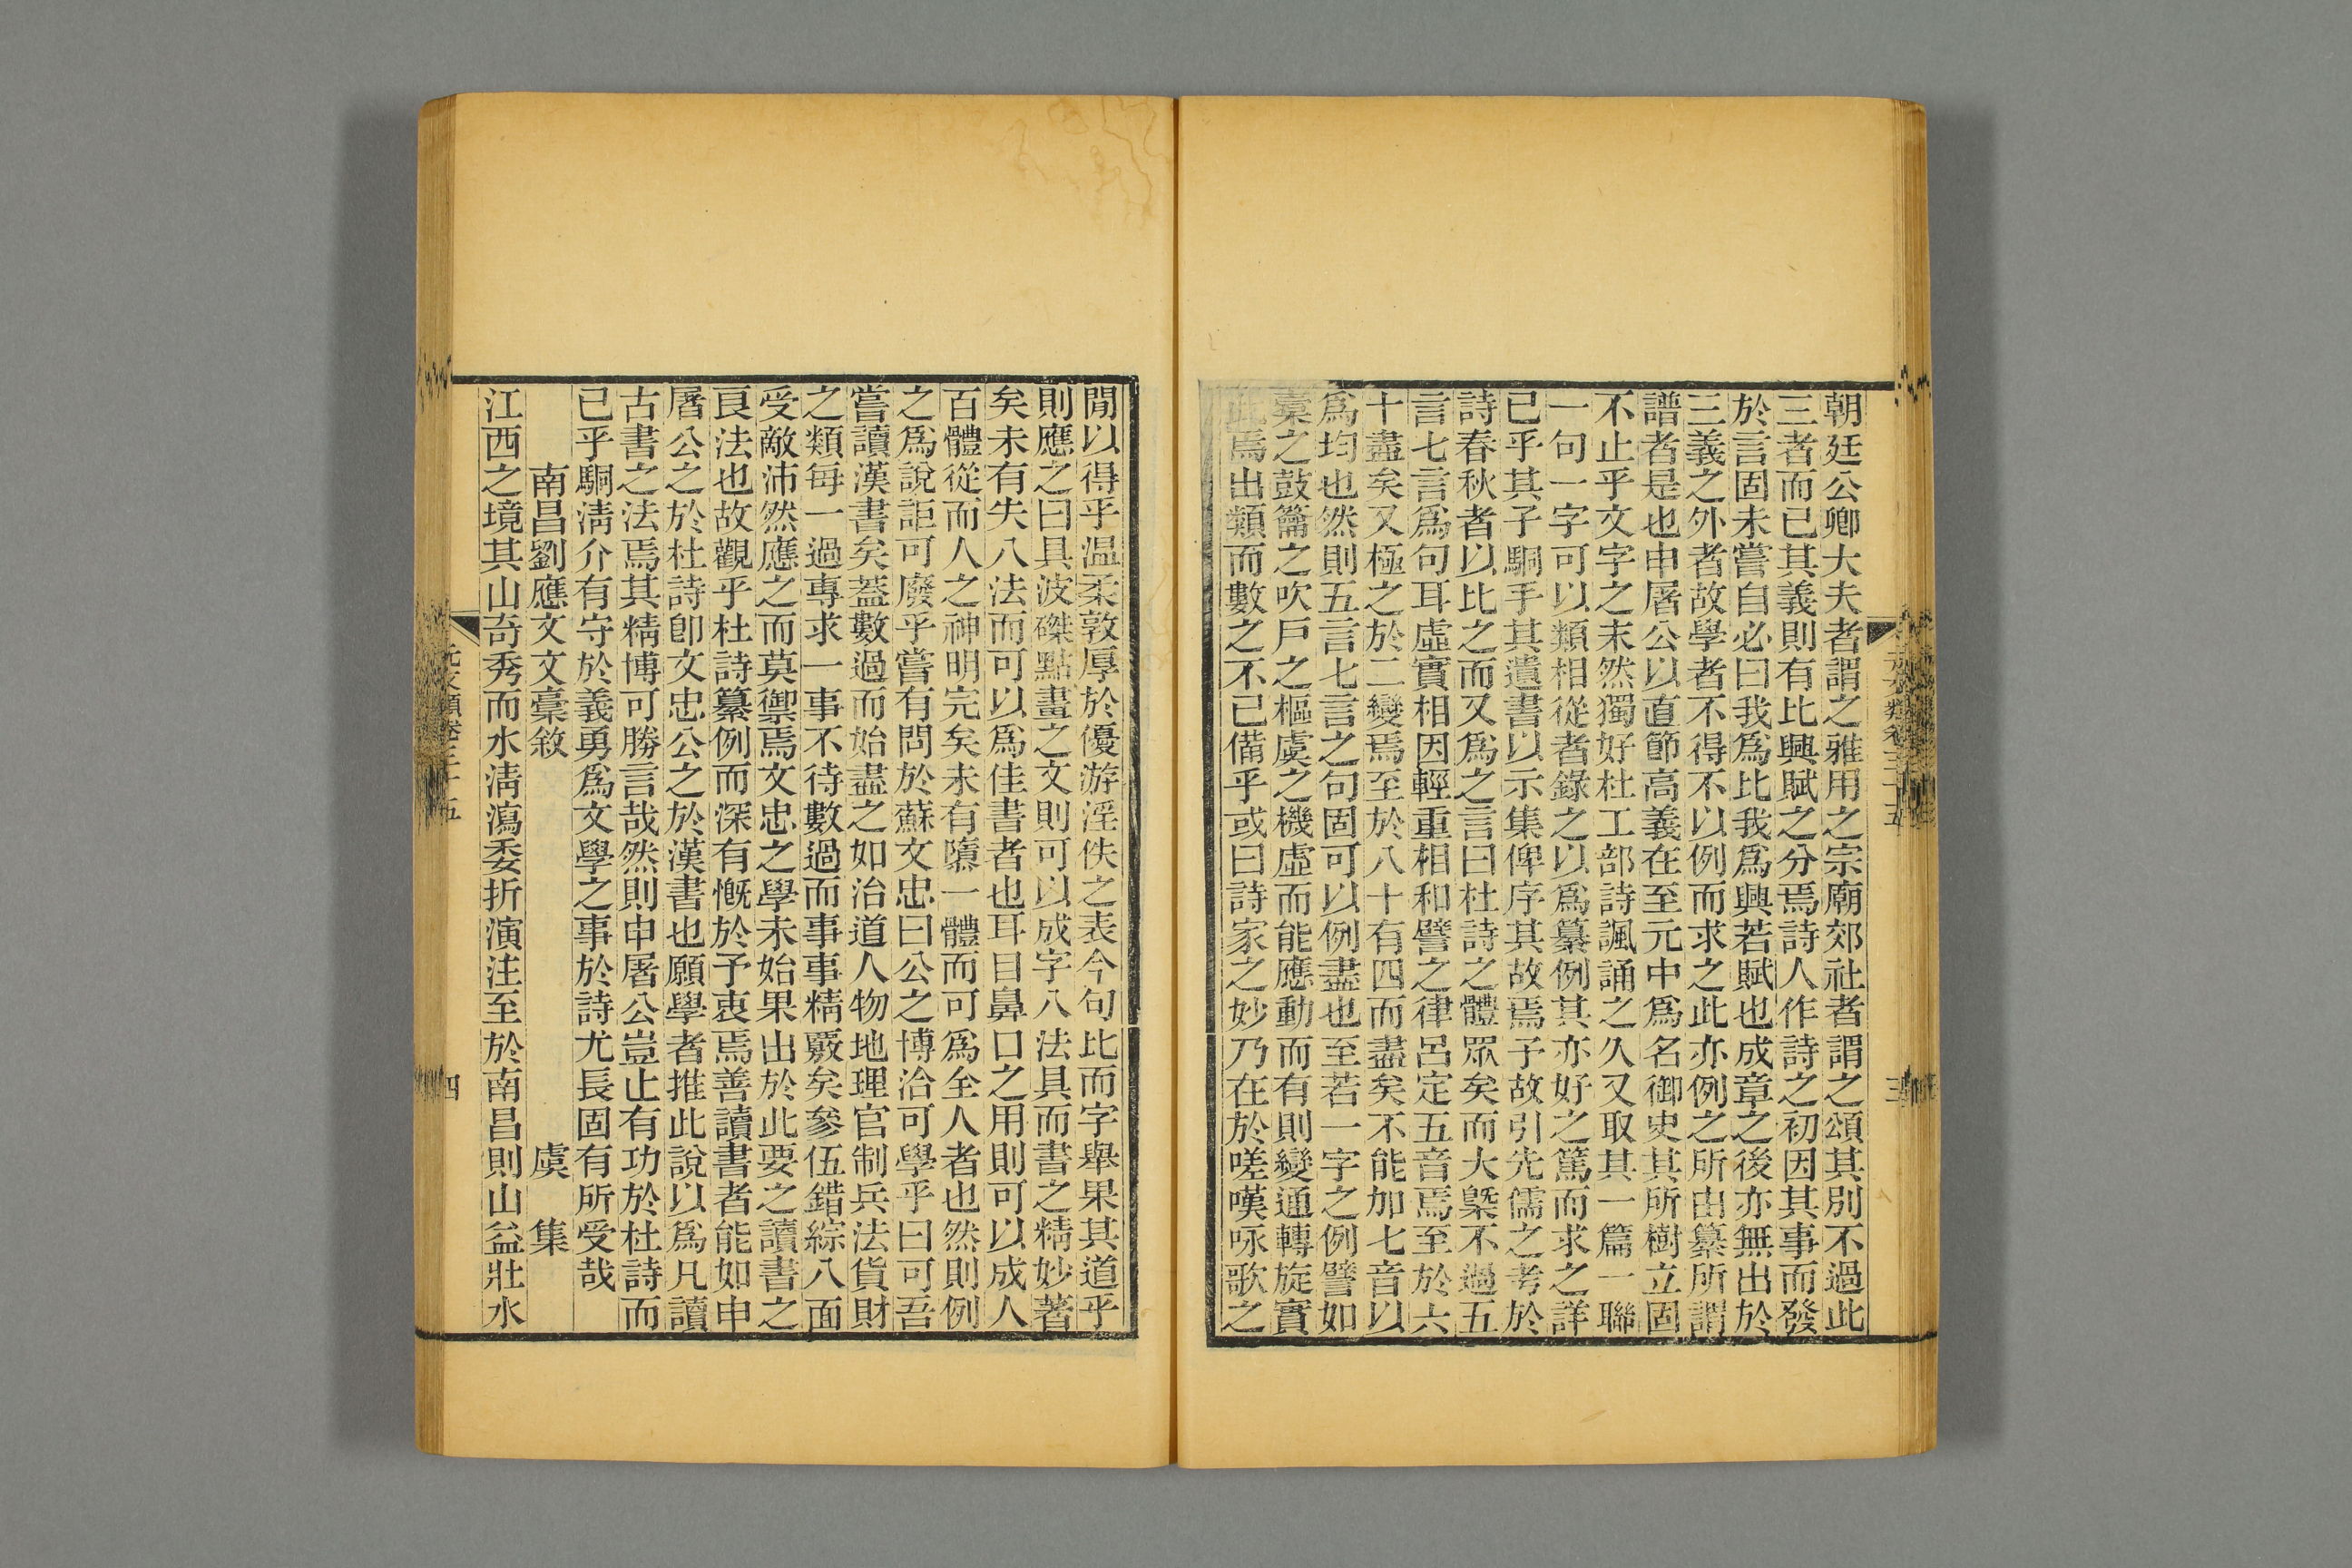 朝廷公卿大夫者謂之雅用之宗廟郊社者謂之頌其別不過此
三者而已其義則有比興賦之分焉詩人作詩之初因其事而發
於言固未嘗自必曰我爲比我爲興若賦也成章之後亦無出於
三義之外者故學者不得不以例而求之此亦例之所由纂所謂
譜者是也申屠公以直節高義在至元中爲名御史其所樹立固
不止乎文字之末然獨好杜工部詩諷誦之久又取其一篇一聯
一句一字可以類相從者錄之以爲纂例其亦好之篤而求之詳
已乎其子駉手其遺書以示集俾序其故焉予故引先儒之考於
詩春秋者以比之而又爲之言曰杜詩之體眾矣而大槩不過五
言七言爲句耳虛實相因輕重相和譬之律呂定五音焉至於六
十盡矣又極之於二變焉至於八十有四而盡矣不能加七音以
爲均也然則五言七言之句固可以例盡也至若一字之例譬如
橐之鼓籥之吹戶之樞虞之機虛而能應動而有則變通轉旋實
此焉出類而數之不已備乎或曰詩家之妙乃在於嗟嘆咏歌之
元文類卷三十五
三
閒以得乎温柔敦厚於優游淫佚之表今句比而字舉果其道乎
則應之曰具波磔點畫之文則可以成字八法具而書之精妙著
矣未有失八法而可以爲佳書者也耳目鼻口之用則可以成人
百體從而人之神明完矣未有隳一體而可爲全人者也然則例
之爲說詎可廢乎嘗有問於蘇文忠曰公之博洽可學乎曰可吾
嘗讀漢書矣蓋數過而始盡之如治道人物地理官制兵法貨財
之類每一過專求一事不待數過而事事精覈矣參伍錯綜八面
受敵沛然應之而莫禦焉文忠之學未始果出於此要之讀書之
良法也故觀乎杜詩纂例而深有慨於予衷焉善讀書者能如申
屠公之於杜詩卽文忠公之於漢書也願學者推此說以爲凡讀
古書之法焉其精博可勝言哉然則申屠公豈止有功於杜詩而
已乎駉淸介有守於義勇爲文學之事於詩尤長固有所受哉
南昌劉應文文稾敘　虞集
江西之境其山奇秀而水淸瀉委折演注至於南昌則山益壯水
元文類卷三十五
四